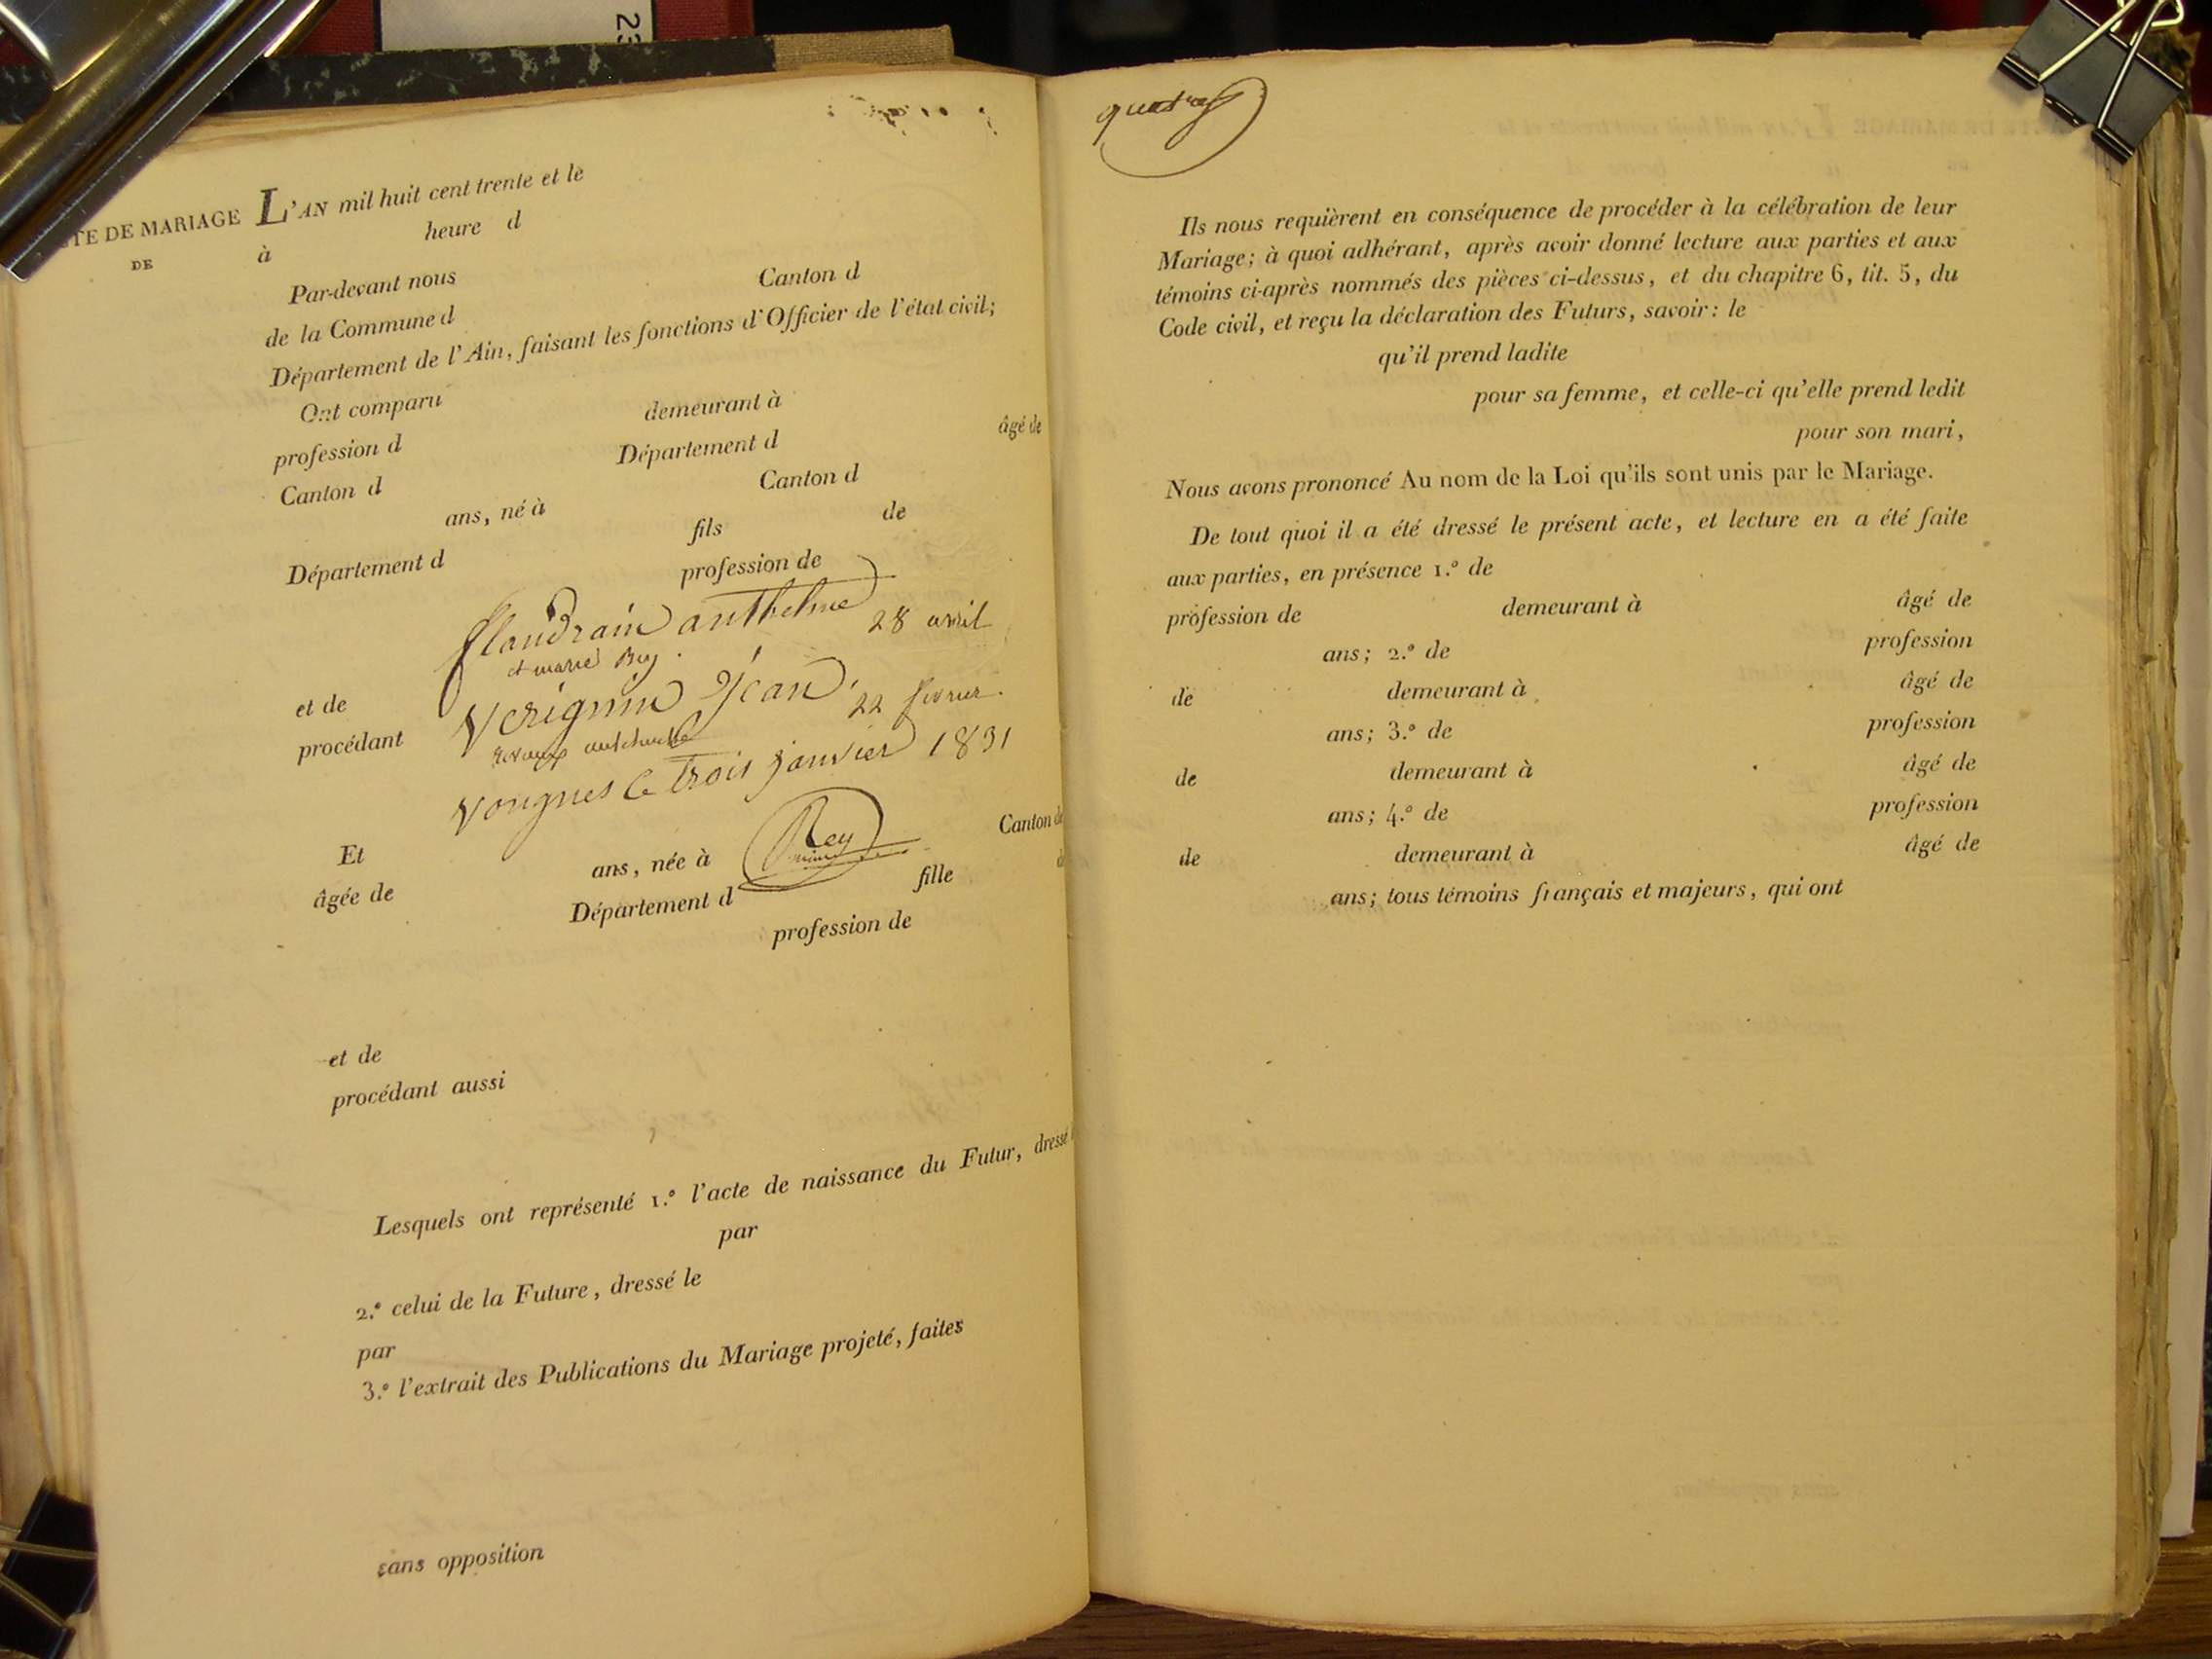 23
ACTE DE MARIAGE L'AN mil huit cent trente et le
DE à heure d
Par-devant nous
de la Commune d Canton d
Département de l'Ain, faisant les fonctions d'Officier de l'état civil;
Ont comparu
profession d demeurant à
Canton d Département d âgé de
ans, né à Canton d
Département d fils de
profession de
flaudrain anthelme 28 avril
et marie Rey
et de
Vérignin Jean 22
procédant
Vongnes le Trois janvier 1831
Rey
Et
âgée de ans, née à Canton de
Département d fille
profession de
et de
procédant aussi
Lesquels ont représenté 1.° l'acte de naissance du Futur, dressé
par
2.° celui de la Future, dressé le
par
3.° l'extrait des Publications du Mariage projeté, faites
sans opposition
quatre
Ils nous requièrent en conséquence de procéder à la célébration de leur
Mariage; à quoi adhérant, après avoir donné lecture aux parties et aux
témoins ci-après nommés des pièces ci-dessus, et du chapitre 6, tit. 5, du
Code civil, et reçu la déclaration des Futurs, savoir: le
qu'il prend ladite
pour sa femme, et celle-ci qu'elle prend ledit
pour son mari,
Nous avons prononcé Au nom de la Loi qu'ils sont unis par le Mariage.
De tout quoi il a été dressé le présent acte, et lecture en a été faite
aux parties, en présence 1.° de
profession de demeurant à âgé de
ans; 2.° de profession
de demeurant à âgé de
ans; 3.° de profession
de demeurant à âgé de
ans; 4.° de profession
de demeurant à âgé de
ans; tous témoins français et majeurs, qui ont